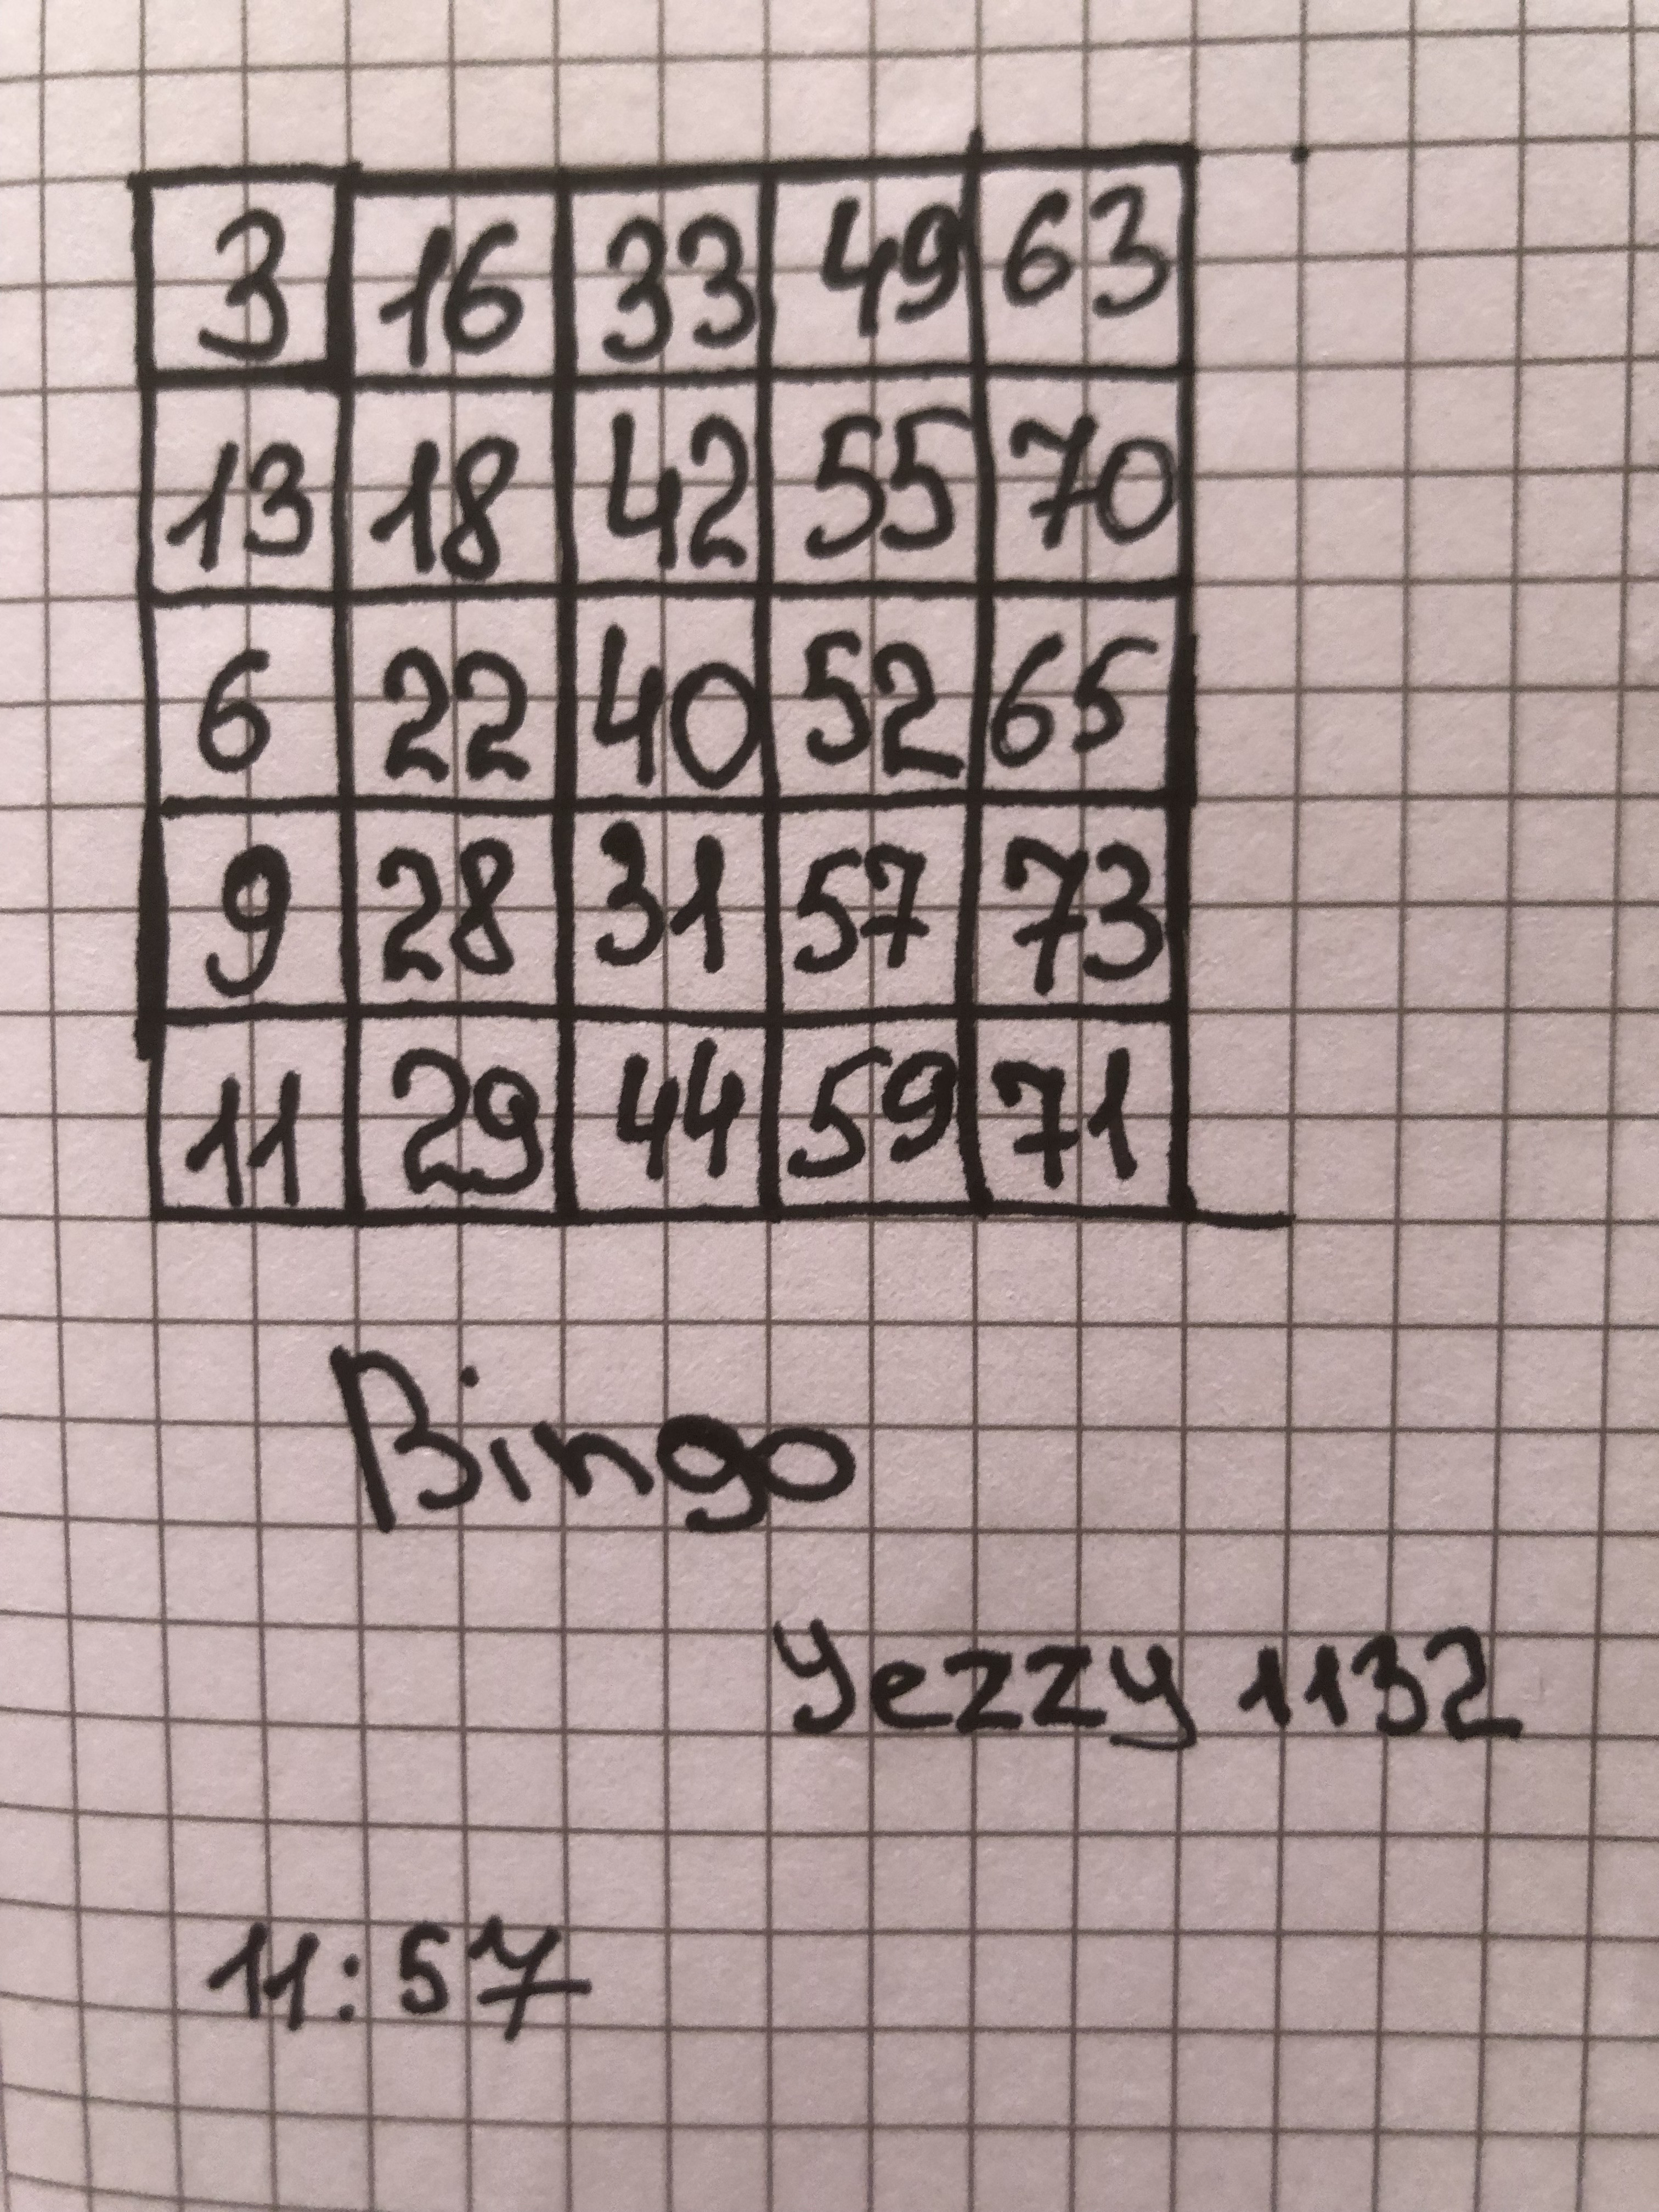 3 16 33 49 63
13 18 42 55 70
6 22 40 52 65
9 28 31 57 73
11 29 44 59 71
Bingo
Yezzy 1132
11:57